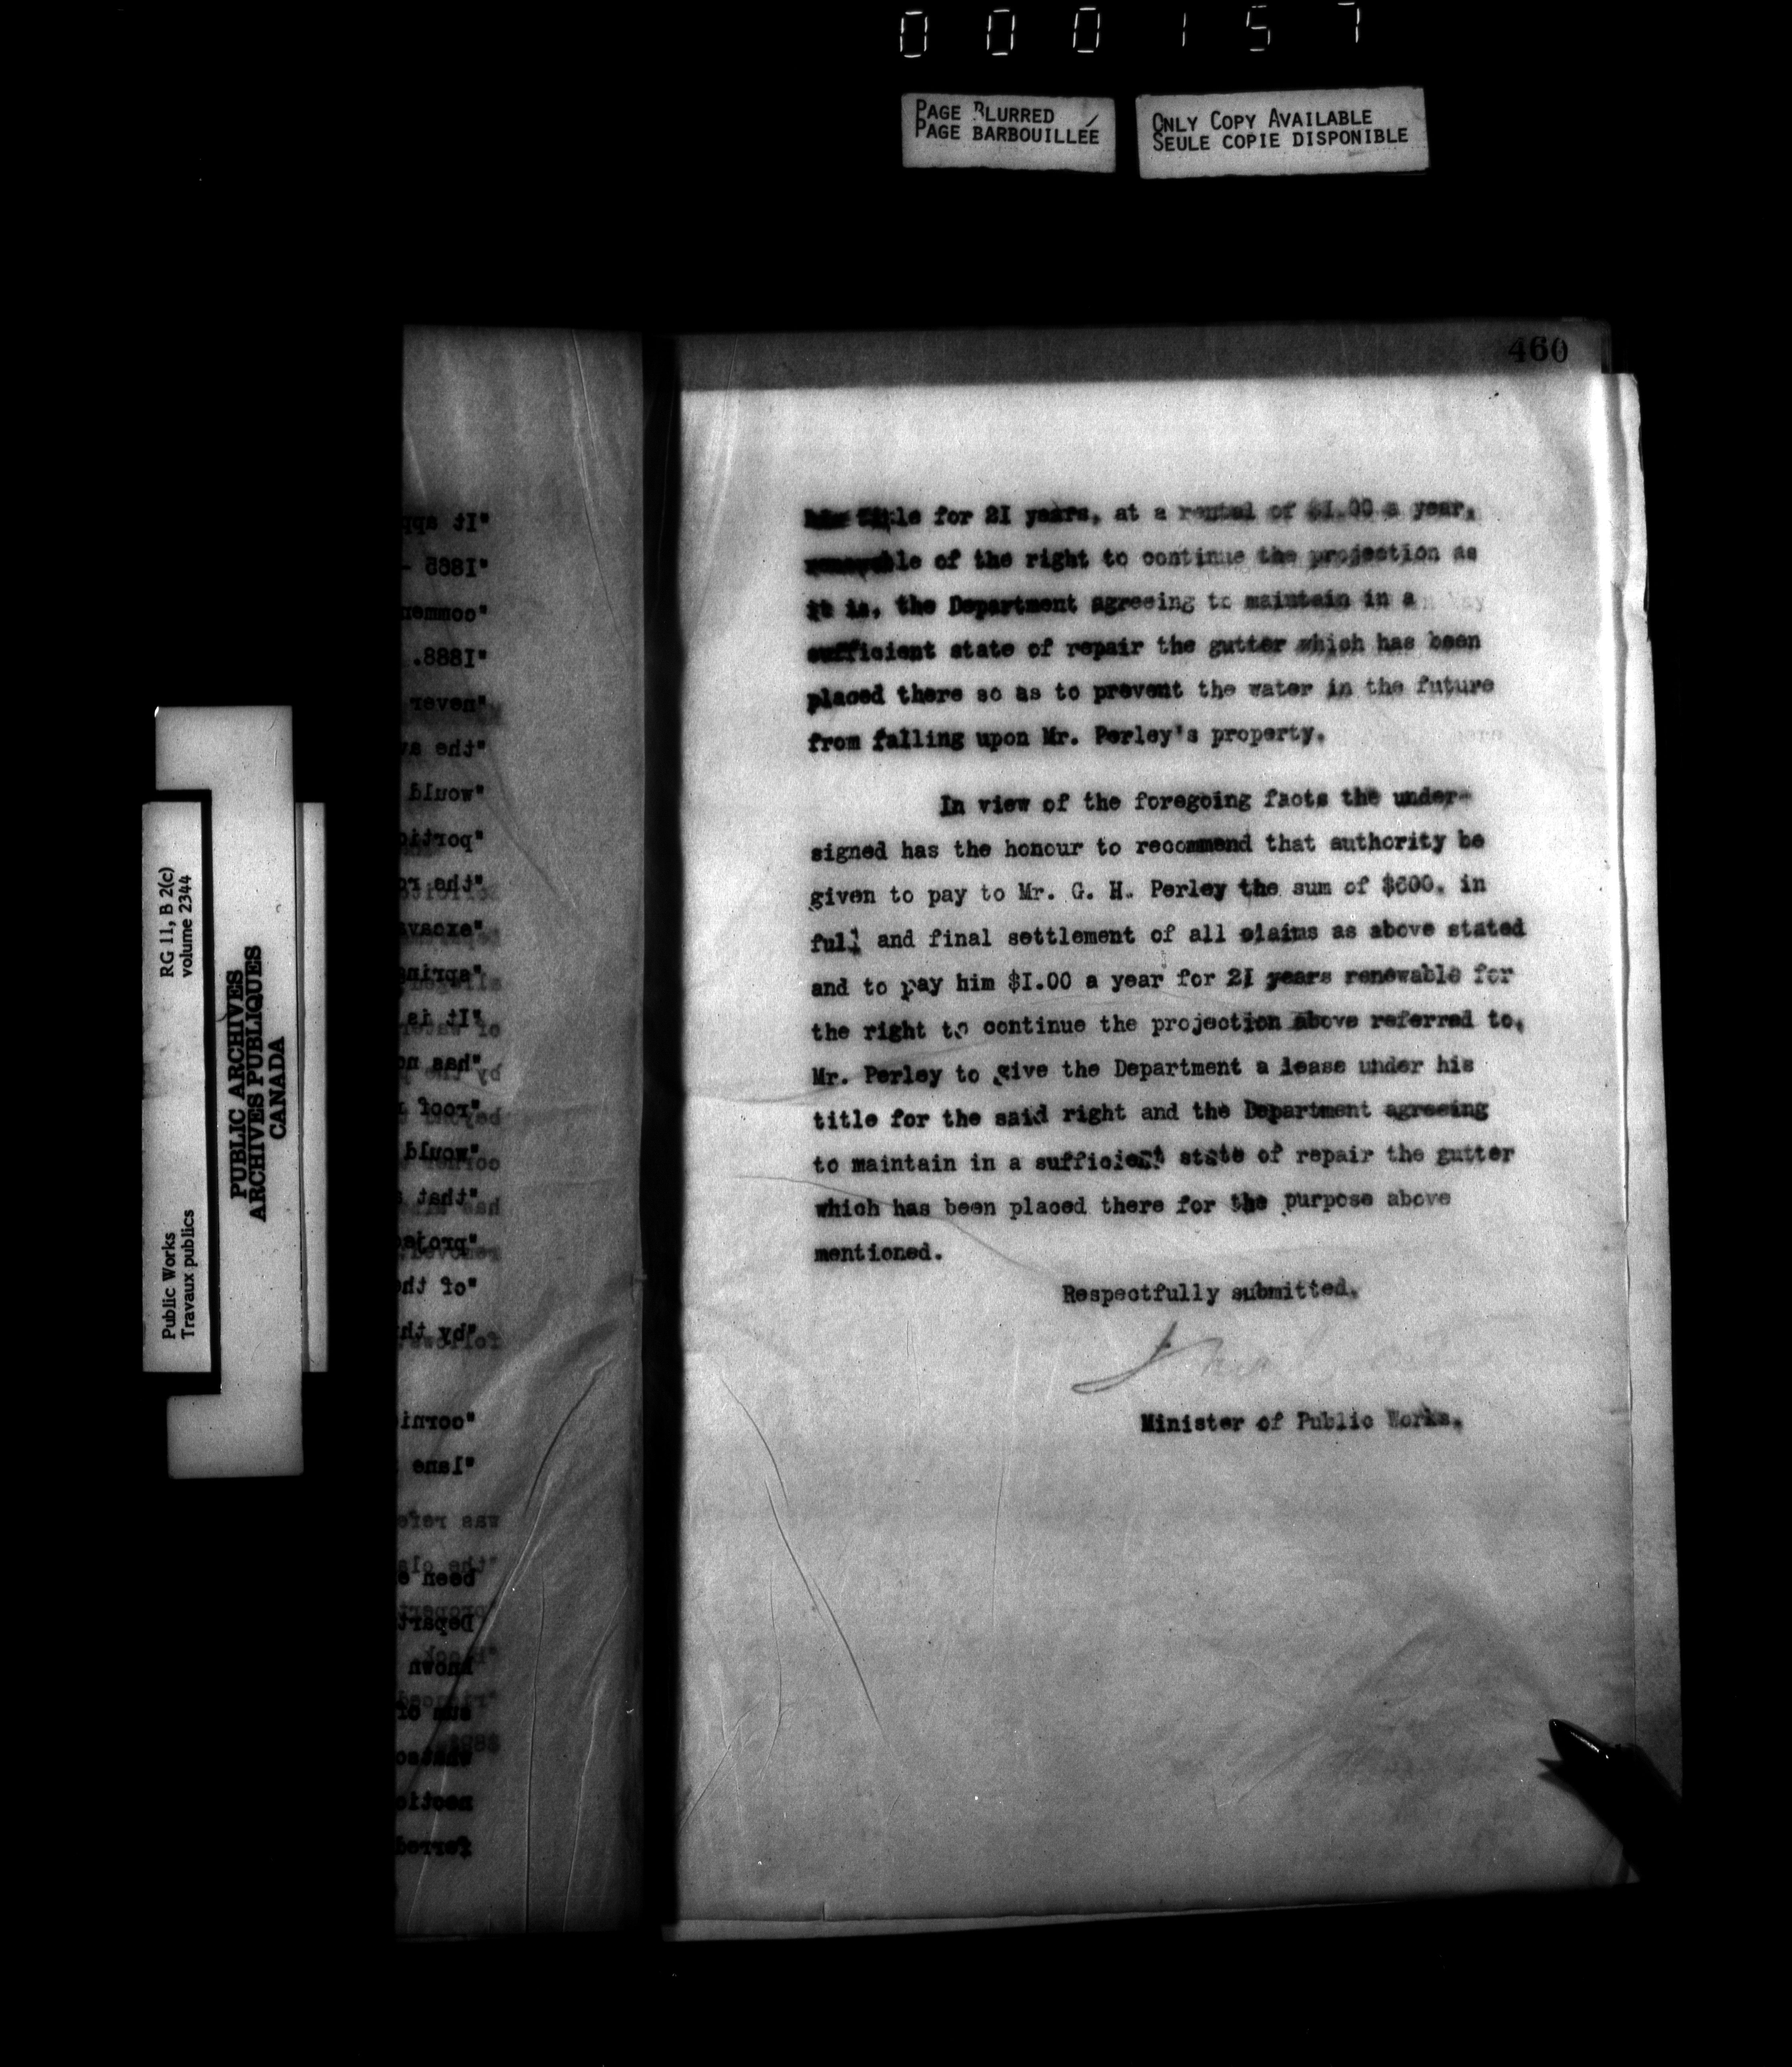 000157
PAGE BLURRED
PAGE BARBOUILLÉE
ONLY COPY AVAILABLE
SEULE COPIE DISPONIBLE
460
his title for 2I years, at a rental of $I.00 a year,
renewable of the right to continue the projection as
it is, the Department agreeing to maintain in a
sufficient state of repair the gutter which has been
placed there so as to prevent the water in the future
from falling upon Mr. Perley's property.
In view of the foregoing facts the under-
signed has the honour to recommend that authority be
given to pay to Mr. G. H. Perley the sum of $600. in
full and final settlement of all claims as above stated
and to pay him $I.00 a year for 2I years renewable for
the right to continue the projection above referred to,
Mr. Perley to give the Department a lease under his
title for the said right and the Department agreeing
to maintain in a sufficient state of repair the gutter
which has been placed there for the purpose above
mentioned.
Respectfully submitted,
Minister of Public Works.
RG 11, B 2(c)
volume 2344
Public Works
Travaux publics
PUBLIC ARCHIVES
ARCHIVES PUBLIQUES
CANADA